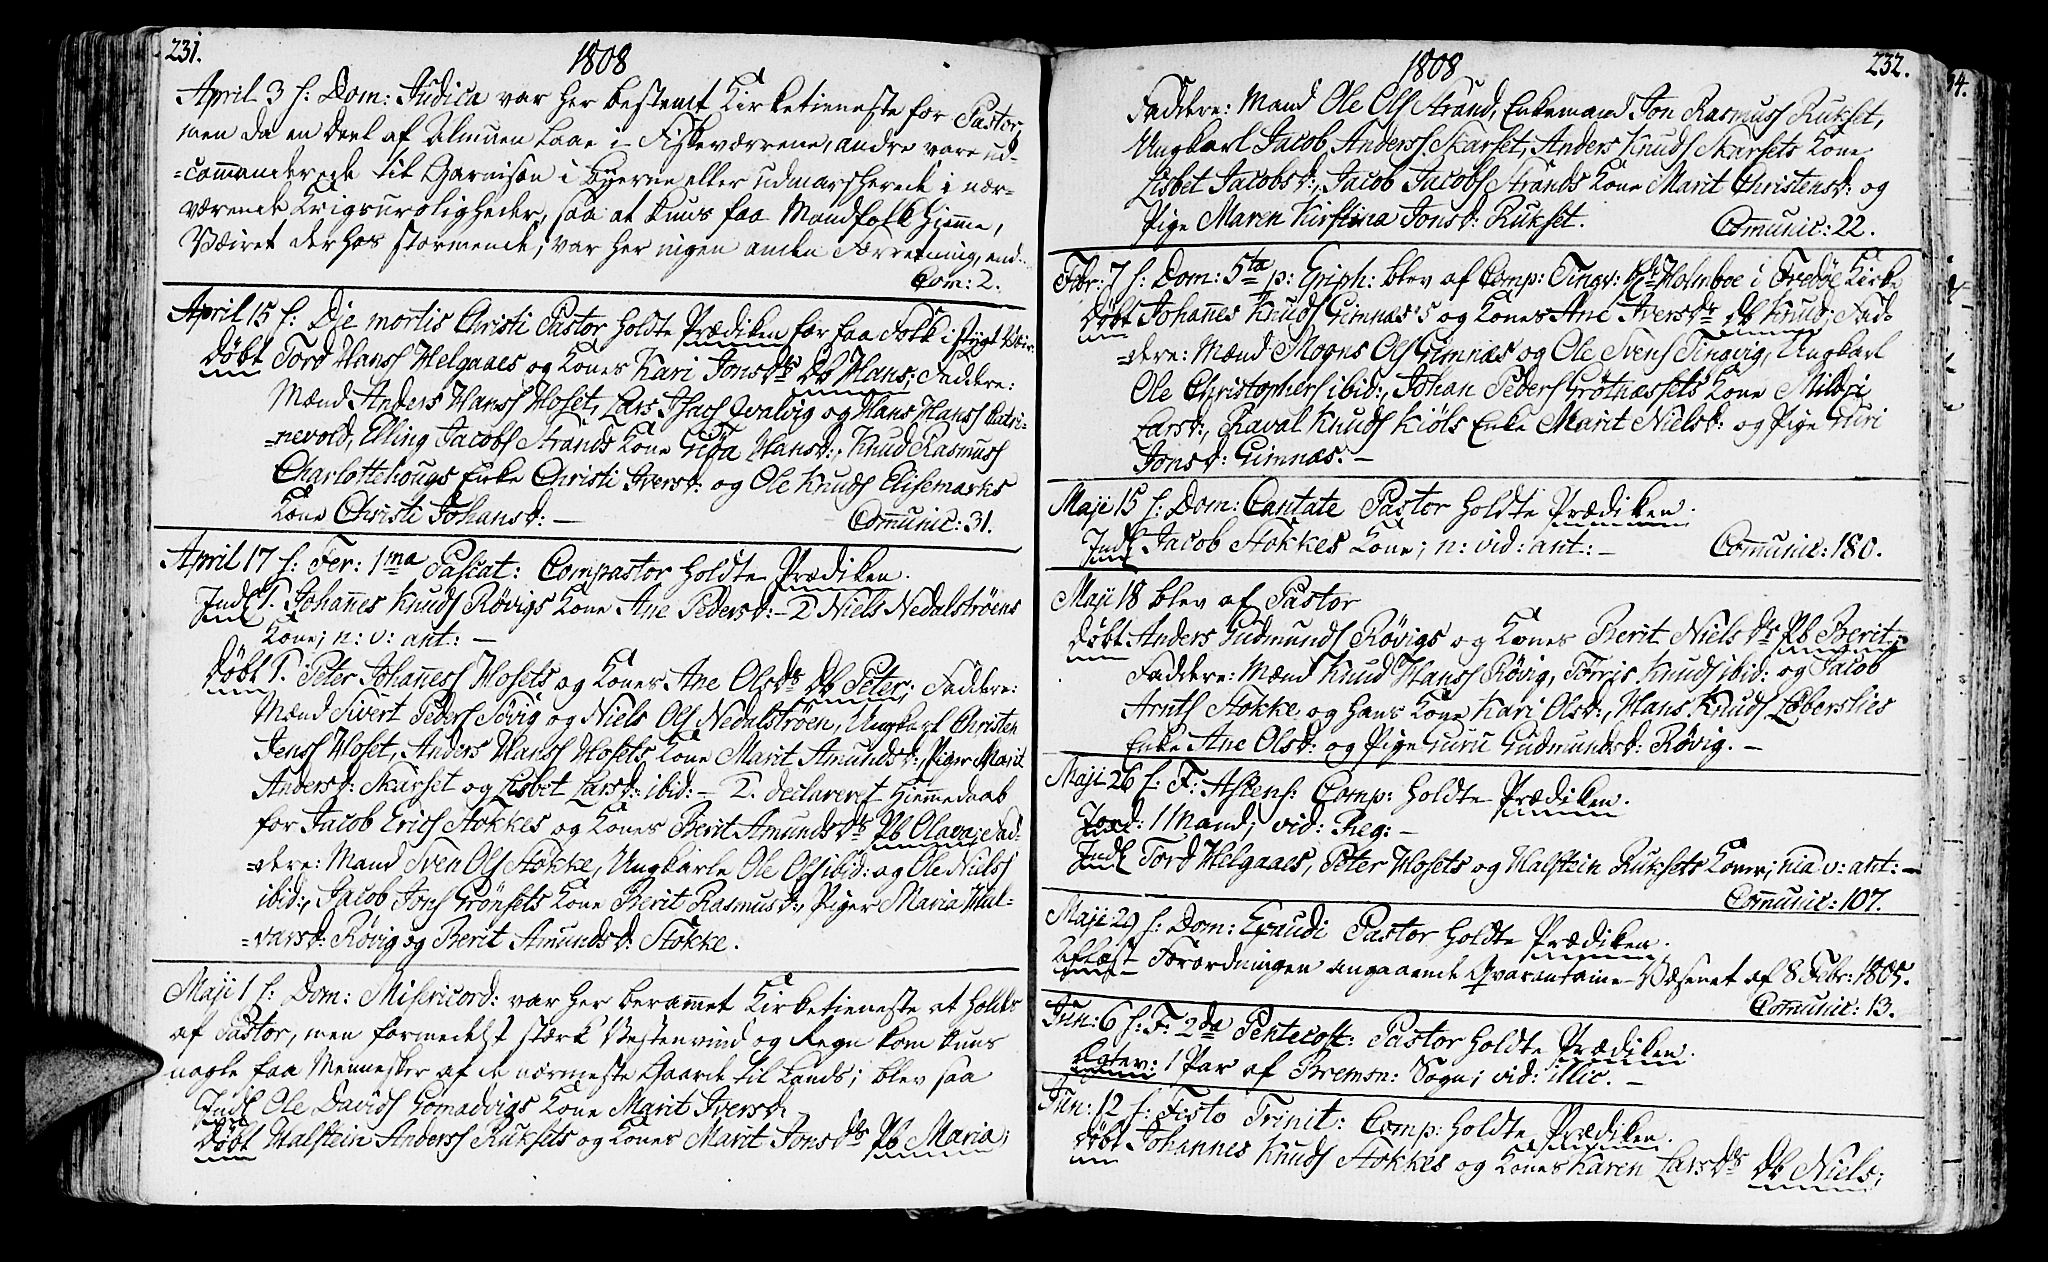 231.
1808
April 3 f: Dom: Judica var her bestemt Kirketieneste for Pastor,
men da en Deel af Almuen laae i Fiskeværrene, andre vare ud-
=commanderede til Garnison i Byerne eller udmarsherede i nær-
værende Krigsuroligheder, saa at kuns faa Mandfolk hiemme,
Væiret derhos stormende; var her ingen anden Forretning, end
Com: 2.
April 15 f: Die mortis Christi Pastor holdte Prædiken for faa Folk i stygt Væir.
Døbt Tord Hansß Helgaaes og Kones Kari Jonsdts Db Hans; Faddere:
Mænd Anders Hansß Hoset, Lars Isachß Qvalvig og Hans Hansß Catri-
=nevold, Elling Jacobß Strands Kone Giøa Hansd:, Knud Rasmusß
Charlottehougs Enke Christi Iversd: og Ole Knudß Elisemarks
Kone Christi Johansd: —
Communic: 31.
April 17 f: Fer: 1ma Pascat: Compastor holdte Prædiken.
Indl 1. Johannes Knudß Røvigs Kone Ane Pedersd: – 2 Niels Nedalstrøens
Kone; n: v: ant: —
Døbt 1. Peter Johannesß Hosets og Kones Ane Olsdts Db Peter; Faddere:
Mænd Sivert Pedersß Søvig og Niels Olsß Nedalstrøen, Ungkarl Christen
Jensß Hoset, Anders Hansß Hosets Kone Marit Amundsd:, Piger Marit
Andersd: Skarset og Lisbet Larsd: ibid: – 2. declareret Hiemmedaab
for Jacob Ericß Stokkes og Kones Berit Amundsdts Pb Olava; Fad-
=dere: Mænd Sven Olsß Stokke, Ungkarle Ole Olsß ibid: og Ole Nielsß
ibid:, Jacob Jonsß Grønsets Kone Berit Rasmusd:, Piger Maria Hal-
=varsd: Røvig og Berit Amundsd: Stokke.
Maji 1 f: Dom: Misericord: var her berammet Kirketieneste at holdes
af Pastor, men formedelst stærk Vestenvind og Regn kom kuns
nogle faa Mennesker af de nærmeste Gaarde til Lands; blev saa
Indl Ole Davidß Gomadvigs Kone Marit Iversd: –
Døbt Halstein Andersß Ruksets og Kones Marit Jonsdts Pb Maria;
232.
1808
Faddere: Mand Ole Olsß Strand, Enkemand Jon Rasmusß Rukset,
Ungkarl Jacob Andersß Skarset, Anders Knudß Skarsets Kone
Lisbet Jacobsd:, Jacob Jacobß Strands Kone Marit Christensd: og
Pige Maren Kirstina Jonsd: Rukset.
Communic: 22.
Febr: 7 f: Dom: 5ta p: Epiph: blev af Comp: Tingv: Holmboe i Fredøe Kirke
Døbt Johannes Knudß Gimnæs's og Kones Ane Iversdts Db Knud; Fad-
=dere: Mænd Mogns Olsß Gimnæs og Ole Svensß Tingvig, Ungkarl
Ole Christophersß ibid:, Johan Pedersß Grøtnæssets Kone Mildri
Larsd:, Raval Knudß Kiøls Enke Marit Nielsd: og Pige Guri
Jonsd: Gimnæs. —
Maji 15 f: Dom: Cantate Pastor holdte Prædiken.
Indl Jacob Stokkes Kone; n: vid: ant: –
Communic: 180.
Maji 18 blev af Pastor
Døbt Anders Gudmundß Røvigs og Kones Berit Nielsdts Pb Berit;
Faddere: Mænd Knud Hansß Røvig, Torris Knudß ibid: og Jacob
Arntß Stokke og hans Kone Kari Olsd:, Hans Knudß Løberslies
Enke Ane Olsd: og Pige Guru Gudmundsd: Røvig. —
Maji 26 f: F: Ascens: Comp: holdte Prædiken.
Jord: 1 Mand; vid: Reg: –
Indl Tord Helgaaes, Peter Hosets og Halstein Ruksets Koner; nia v: ant: –
Communic: 107.
Maji 29 f: Dom: Exaudi Pastor holdte Prædiken.
Aflæst Forordningen angaaende Qvarantaine-Væsenet af 8 Febr: 1805.
Communic: 13.
Jun: 6 f: F: 2da Pentecost: Pastor holdte Prædiken.
Egtev: 1 Par af Bremsn: Sogn; vid: illic. —
Jun: 12 f: Festo Trinit: Comp: holdte Prædiken.
Døbt Johannes Knudß Stokkes og Kones Karen Larsdts Db Niels;